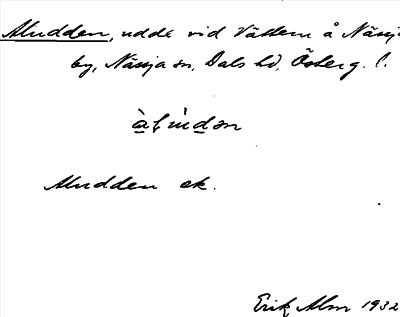 Aludden, udde vid Vättern å Näsj
by, Näsja sn, Dals hd, Österg. l.
Aludden ek.
Erik Alm 1932